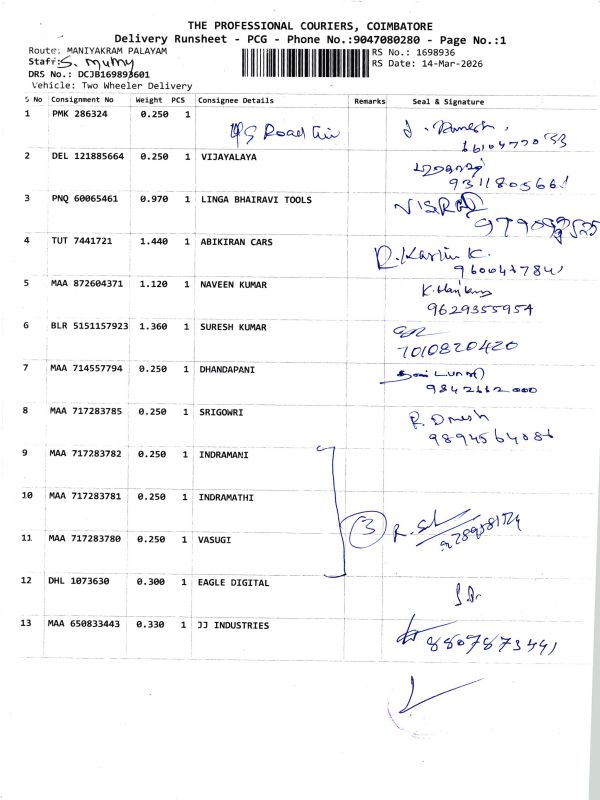 THE PROFESSIONAL COURIERS, COIMBATORE
Delivery Runsheet - PCG - Phone No.:9047080280 - Page No.:1
Route: MANIYAKRAM PALAYAM
RS No.: 1698936
Staff:
RS Date: 14-Mar-2026
DRS No.: DCJB169893601
Vehicle: Two Wheeler Delivery
S No Consignment No Weight PCS Consignee Details Remarks Seal & Signature
1 PMK 286324 0.250 1
2 DEL 121885664 0.250 1 VIJAYALAYA
3 PNQ 60065461 0.970 1 LINGA BHAIRAVI TOOLS
4 TUT 7441721 1.440 1 ABIKIRAN CARS
R. Karthi K.
5 MAA 872604371 1.120 1 NAVEEN KUMAR
9629355954
6 BLR 5151157923 1.360 1 SURESH KUMAR
7010820420
7 MAA 714557794 0.250 1 DHANDAPANI
8 MAA 717283785 0.250 1 SRIGOWRI
R. Dinesh
9 MAA 717283782 0.250 1 INDRAMANI
10 MAA 717283781 0.250 1 INDRAMATHI
3
11 MAA 717283780 0.250 1 VASUGI
12 DHL 1073630 0.300 1 EAGLE DIGITAL
13 MAA 650833443 0.330 1 JJ INDUSTRIES
8807873441